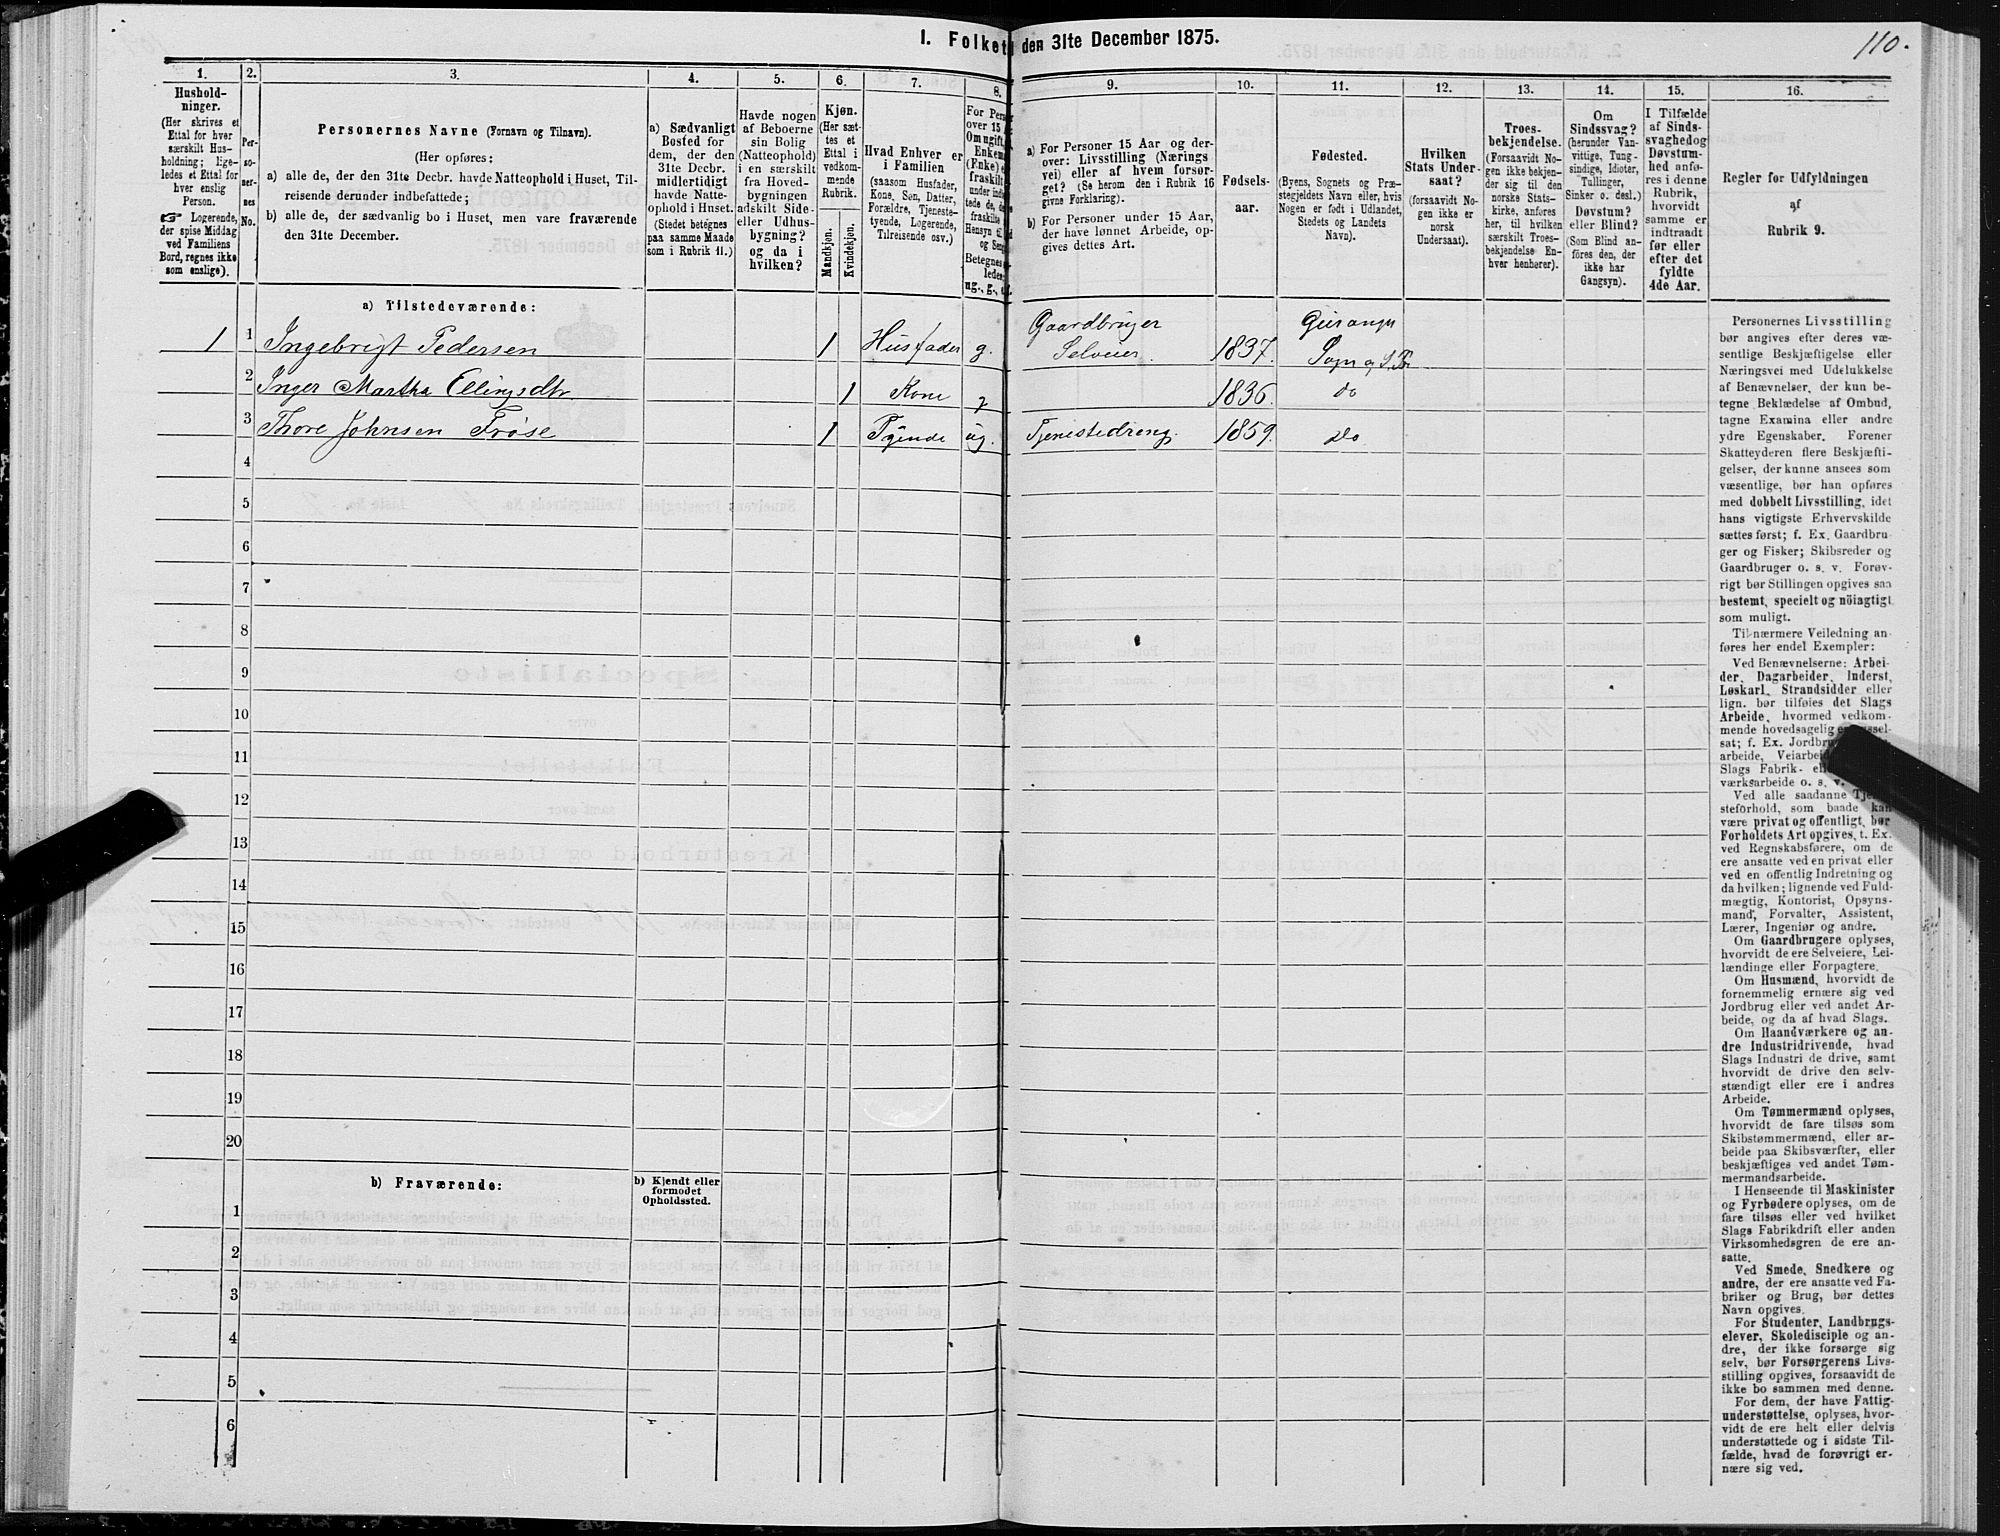 110.
I. Folket den 31te December 1875.
1.
Hushold-
ninger.
(Her skrives et
Ettal for hver
særskilt Hus-
holdning; lige-
ledes et Ettal for
hver enslig
Person.
Logerende,
der spise Middag
ved Familiens
Bord, regnes ikke
som enslige).
2.
Per-
so-
ner-
nes
No.
3.
Personernes Navne (Fornavn og Tilnavn).
(Her opføres:
a) alle de, der den 31te Decbr. havde Natteophold i Huset, Til-
reisende derunder indbefattede;
b) alle de, der sædvanlig bo i Huset, men vare fraværende
den 31te December.
4.
a) Sædvanligt
Bosted for
dem, der den
31te Decbr.
midlertidigt
havde Natte-
ophold i Huset.
(Stedet betegnes
paa samme Maade
som i Rubrik 11.)
5.
Havde nogen
af Beboerne
sin Bolig
(Natteophold)
i en særskilt
fra Hoved-
bygningen
adskilt Side-
eller Udhus-
bygning?
og da i
hvilken?
6.
Kjøn.
(Her sæt-
tes et
Ettal i
vedkom-
mende
Rubrik.
Mandkjøn.
Kvindekjøn.
7.
Hvad Enhver er
i Familien
(saasom Husfader,
Kone, Søn, Datter,
Forældre, Tjeneste-
tyende, Logerende,
Tilreisende osv.)
8.
For Pers
over 15
Omugift,
Enkem
(Enke) e
fraskilt
under indbe
tede de, de
fraskilte
Hensyn til
og Sen
Betegnes
ledes
ug., g., e
9.
a) For Personer 15 Aar og der-
over: Livsstilling (Nærings
vei) eller af hvem forsør-
get? (Se herom den i Rubrik 16
givne Forklaring).
b) For Personer under 15 Aar,
der have lønnet Arbeide, op-
gives dettes Art.
10.
Fødsels-
aar.
11.
Fødested.
(Byens, Sognets og Præ-
stegjeldets Navn eller, hvis
Nogen er født i Udlandet,
Stedets og Landets
Navn).
12.
Hvilken
Stats Under-
saat?
(forsaavidt No-
gen ikke er
norsk
Undersaat).
13.
Troes-
bekjendelse.
(Forsaavidt No-
gen ikke bekjen-
der sig til den
norske Stats-
kirke, anføres
her, til hvilken
særskilt Troes-
bekjendelse En-
hver henhører).
14.
Om
Sindssvag?
(herunder Van-
vittige, Tung-
sindige, Idioter,
Tullinger,
Sinker o. desl.)
Døvstum?
eller Blind?
(Som Blind an-
føres den, der
ikke har
Gangsyn).
15.
I Tilfælde
af Sinds-
svaghed og
Døvstum-
hed anfø-
res i denne
Rubrik,
hvorvidt
samme er
indtraadt
før eller
efter det
fyldte
4de Aar.
16.
Regler for Udfyldningen
af
Rubrik 9.
a) Tilstedeværende:
1 1 Ingebrigt Pedersen 1 Husfader g. Gaardbruger Selveier. 1837. Geiranger Sogn og
2 Inger Martha Ellingsdtr 1 Kone g 1836. do
3 Thore Johnsen Frøse 1 Tyende ug. Tjenestedreng. 1859. do
4
5
6
7
8
9
10
11
12
13
14
15
16
17
18
19
20
b) Fraværende:
b) Kjendt eller
formodet
Opholdssted.
1
2
3
4
5
6
Personernes Livsstilling
bør angives efter deres væ-
sentlige Beskjæftigelse eller
Næringsvei med Udelukkelse
af Benævnelser, der kun be-
tegne Beklædelse af Ombud,
tagne Examina eller andre
ydre Egenskaber. Forener
Skatteyderen flere Beskjæfti-
gelser, der kunne ansees som
væsentlige, bør han opføres
med dobbelt Livsstilling, idet
hans vigtigste Erhvervskilde
sættes først; f. Ex. Gaardbru-
ger og Fisker; Skibsreder og
Gaardbruger o. s. v. Forøv-
rigt bør Stillingen opgives saa
bestemt, specielt og nöiagtigt
som muligt.
Til nærmere Veiledning an-
føres her endel Exempler:
Ved Benævnelserne: Arbei-
der, Dagarbeider, Inderst,
Løskarl, Strandsidder eller
lign. bør tilføies det Slags
Arbeide, hvormed vedkom-
mende hovedsagelig
sat; f. Ex. Jordbru
arbeide, Veiarbeid
Slags Fabrik- ell
værksarbeide o. s. v.
Ved alle saadanne Tje
steforhold, som baade kan
være privat og offentligt, bør
Forholdets Art opgives, t. Ex.
ved Regnskabsførere, om de
ere ansatte ved en privat eller
ved en offentlig Indretning og
da hvilken; lignende ved Fuld-
mægtig, Kontorist, Opsyns-
mand, Forvalter, Assistent,
Lærer, Ingeniør og andre.
Om Gaardbrugere oplyses,
hvorvidt de ere Selveiere, Lei-
lændinge eller Forpagtere.
Om Husmænd, hvorvidt de
fornemmelig ernære sig ved
Jordbrug eller ved andet Ar-
beide, og da af hvad Slags.
Om Haandværkere og an-
dre Industridrivende, hvad
Slags Industri de drive, samt
hvorvidt de drive den selv-
stændigt eller ere i andres
Arbeide.
Om Tømmermænd oplyses,
hvorvidt de fare tilsøs som
Skibstømmermænd, eller ar-
beide paa Skibsværfter, eller
beskjæftiges ved andet Tøm-
mermandsarbeide.
I Henseende til Maskinister
og Fyrbødere oplyses, om de
fare tilsøs eller ved hvilket
Slags Fabrikdrift eller anden
Virksomhedsgren de ere an-
satte.
Ved Smede, Snedkere og
andre, der ere ansatte ved Fa-
briker og Brug, bør dettes
Navn opgives.
For Studenter, Landbrugs-
elever, Skoledisciple og an-
dre, der ikke forsørge sig
selv, bør Forsørgerens Livs-
stilling opgives, forsaavidt de
ikke bo sammen med denne.
For dem, der have Fattig-
understøttelse, oplyses, hvor-
vidt de ere helt eller delvis
understøttede og i sidste Til-
fælde, hvad de forøvrigt er-
nære sig ved.